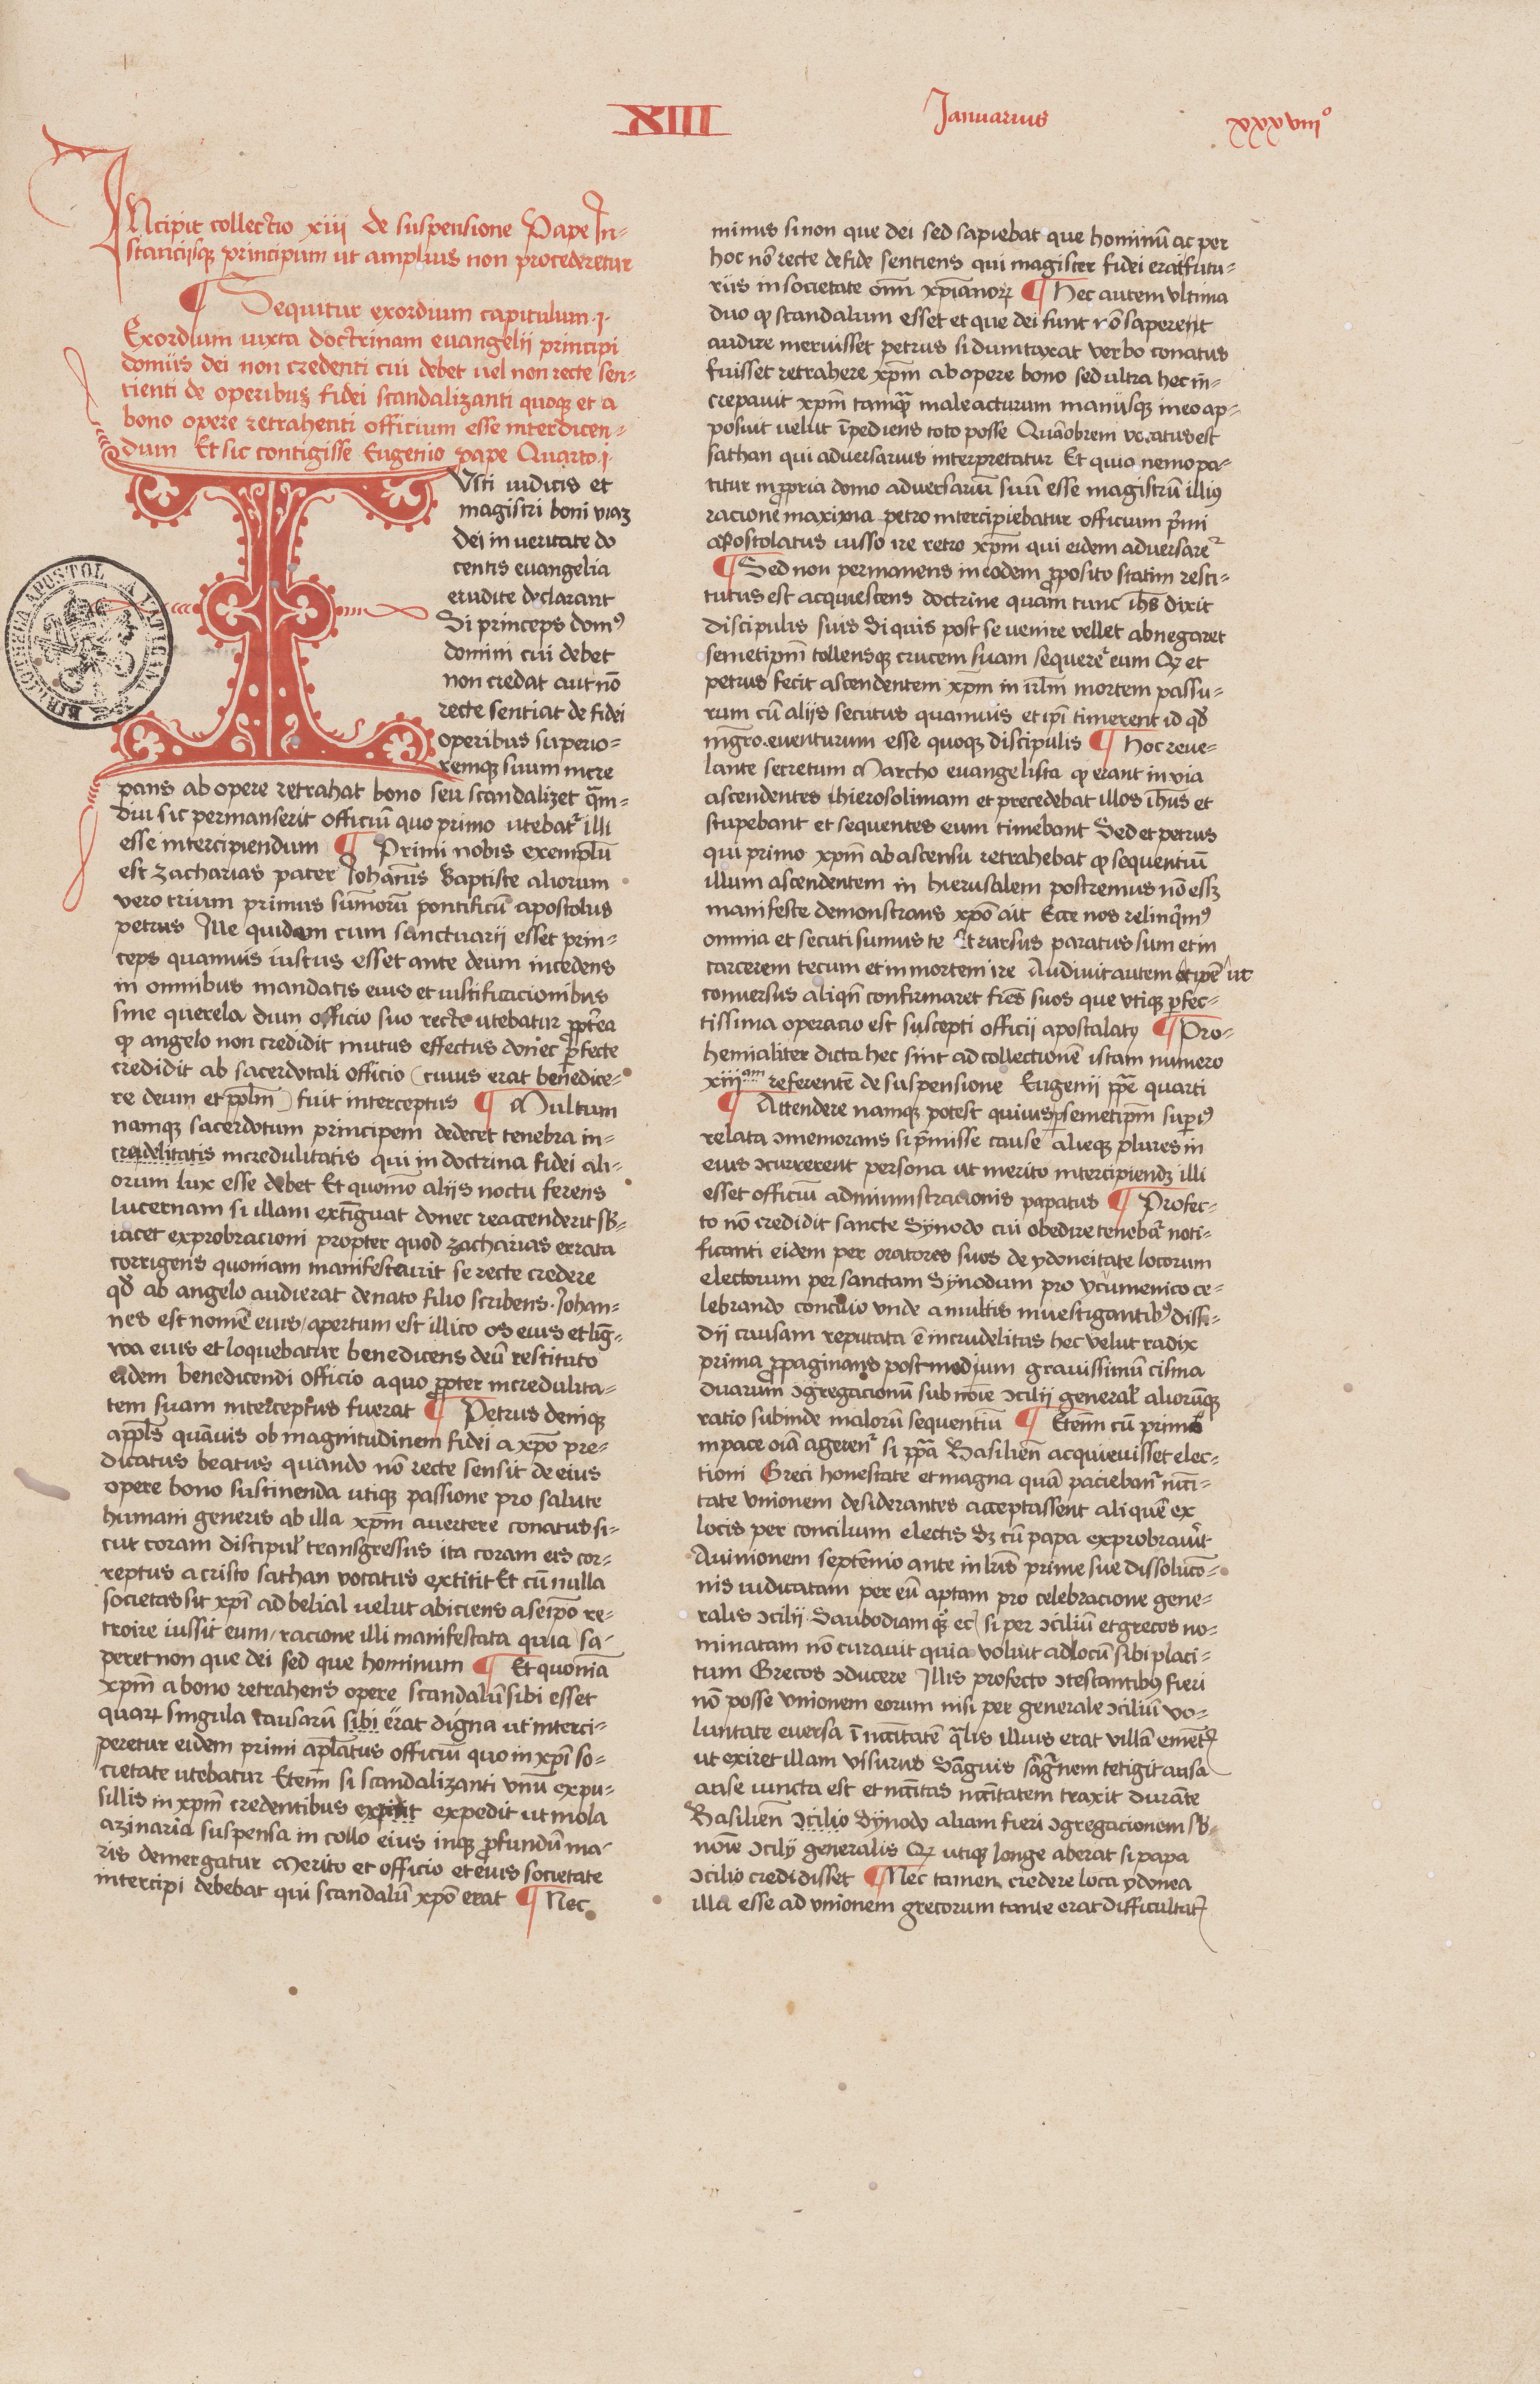 XIII Januarius xxxviiiº
INcipit collectio xiii de suspensione Pape In-
stancijsq̃ principum ut amplius non procederetur
¶ Sequitur exordium capitulum .j.
Exordium iuxta doctrinam euangelii principi
domus dei non credenti cui debet uel non recte sen-
tienti de operibus fidei scandalizanti quoqꝫ et a
bono opere retrahenti officium esse interdicen-
dum Et sic contigisse Eugenio pape Quarto .j.
IUsti iudicis et
magistri boni viaꝫ
dei in ueritate do
centis euangelia
erudite declarant
Si princeps domꝰ
domini cui debet
non credat aut nō
recte sentiat de fidei
operibus superio-
remqꝫ suum incre
pans ab opere retrahat bono seu scandalizet q̃m-
diu sic permanserit officiū quo primo utebat᷑ illi
esse intercipiendum ¶ Primi nobis exemplū
est zacharias pater Johānis Baptiste aliorum
vero trium primus sūmorū pontificū apostolus
petrus Ille quidem cum sanctuarii esset prin-
ceps quamuis iustus esset ante deum incedens
in omnibus mandatis eius et iustificacionibus
sine querela dum officio suo recte utebatur ꝓpt̃ea
qꝫ angelo non credidit mutus effectus donec ꝑfecte
credidit ab sacerdotali officio (cuius erat benedice-
re deum et ppl̃m) fuit interceptus ¶ Multum
namqꝫ sacerdotum principem dedecet tenebra in-
crudelitatis incredulitatis qui in doctrina fidei ali-
orum lux esse debet Et quomo aliis noctu ferens
lucernam si illam extīguat donec reaccenderit sƀ-
iacet exprobracioni propter quod zacharias errata
corrigens quoniam manifestauit se recte credere
qđ ab angelo audierat de nato filio scribens . Johan-
nes est nomē eius / apertum est illico os eius et lig̃-
wa eius et loquebatur benedicens deū restituto
eidem benedicendi officio a quo ꝓpter incredulita-
tem suam interceptus fuerat ¶ Petrus deniqꝫ
appl̃s quāuis ob magnitudinem fidei a xp̃o pre-
dicatus beatus quando nō recte sensit de eius
opere bono sustinenda utiqꝫ passione pro salute
humani generis ab illa xp̃m auertere conatus si-
cut coram discipul᷑ transgressus ita coram eis cor-
reptus a cristo sathan vocatus extitit Et cū nulla
societas sit xp̃i ad belial uelut abiciens a seip̃o re-
troire iussit eum / racione illi manifestata quia sa-
peret non que dei sed que hominum ¶ Et quoniā
xp̃m a bono retrahens opere scandalū sibi esset
quarꝫ singula causarū sibi erat digna ut interci-
peretur eidem primi apl̃atus officiū quo in xp̃i so-
cietate utebatur Eteni᷑ si scandalizanti vnū ex pu-
sillis in xp̃m credentibus expedit ut mola
azinaria suspensa in collo eius inqꝫ ꝓfundū ma-
ris demergatur Merito et officio et eius societate
intercipi debebat qui scandalū xp̃o erat ¶ Nec
minus si non que dei sed sapiebat que hominū ac per
hoc nō recte de fide sentiens qui magister fidei erat futu-
rus in societate om̃i xp̃ianorꝝ ¶ Hec autem vltima
duo qꝫ scandalum esset et que dei sunt nō saperent
audire meruisset petrus si dumtaxat verbo conatus
fuisset retrahere xp̃m ab opere bono sed ultra hec in-
crepauit xp̃m tamq̃ male acturum manusqꝫ in eo ap-
posuit uelut īpediens toto posse Quāobrem vocatus est
sathan qui aduersarius interpretatur Et quia nemo pa-
titur in ꝓpria domo aduersariū suū esse magistrū illiꝰ
racione maxima petro intercipiebatur officium p̃mi
apostolatus iusso ire retro xp̃m qui eidem aduersare᷑
¶ Sed non permanens in eodem ꝓposito statim resti-
tutus est acquiescens doctrine quam tunc ih̃s dixit
discipulis suis Si quis post se uenire vellet abnegaret
semetip̃m tollensqꝫ crucem suam sequere᷑ eum Qꝫ et
petrus fecit ascendentem xp̃m in irl̃m mortem passu-
rum cū aliis secutus quamuis et ip̃i timerent id qđ
in ꝓ. euenturum esse quoqꝫ discipulis ¶ Hoc reue-
lante secretum Marcho euangelista qꝫ erant in via
ascendentes ihierosolimam et precedebat illos ih̃us et
stupebant et sequentes eum timebant Sed et petrus
qui primo xp̃m ab ascensu retrahebat qꝫ sequentiū
illum ascendentem in hierusalem postremus nō essꝫ
manifeste demonstrans xp̃o ait Ecce nos relinq̃mꝰ
omnia et secuti sumus te Et rursus paratus sum et in
carcerem tecum et in mortem ire Audiuit autem et ip̃e ut
conuersus aliqñ confirmaret fr̃es suos que vtiqꝫ ꝑfec-
tissima operacio est suscepti officii apostolatꝰ ¶ Pro-
hemialiter dicta hec sint ad collectionē istam numero
xiiiᵃᵐ referentē de suspensione Eugenii pp̃e quarti
¶ Attendere namqꝫ potest quiuis semetip̃m sup̃iꝰ
relata ↄmemorans si p̃misse cause alieqꝫ plures in
eius ↄcurrerent persona ut merito intercipiendꝫ illi
esset officiū administracionis papatus ¶ Profec-
to nō credidit sancte Synodo cui obedire teneba᷑ noti-
ficanti eidem per oratores suos de ydoneitate locorum
electorum per sanctam Synodum pro ycumenico ce-
lebrando concilio vnde a multis inuestigantibꝰ dissi-
dii causam reputata ē incrudelitas hec velut radix
prima ꝓpaginans postmodum grauissimū cisma
duarum ↄgregacionū sub noīe ↄcilii general᷑ aliorūqꝫ
ratio subinde malorū sequentiū ¶ Etenī cū primo
in pace oīa ageren᷑ si pp̃a Basilieñ acquieuisset elec-
tioni Greci honestate et magna quā paciebant᷑ nēcci-
tate vnionem desiderantes acceptassent aliquē ex
locis per concilium electis Sꝫ cū papa exprobrauit
Auinionem septēnio ante in lr̃is prime sue dissolucō-
nis iudicatam per eū aptam pro celebracione gene-
ralis ↄcilii . Sabodiamqꝫ ec̃ si per ↄciliū et grecos no-
minatam nō curauit quia voluit ad locū sibi placi-
tum Grecos ↄducere Illis profecto ↄtestantibꝰ fieri
nō posse vnionem eorum nisi per generale ↄciliū vo-
luntate euersa ī nccītatē q̃lis illius erat villā
ut exiret illam visurus Sanguis sāg̃nem tetigit ausa
ause iuncta est et nccītas nccītatem traxit durāte
Basilieñ ↄcilio Synodo aliam fieri ↄgregacionem sƀ-
noīe ↄcilij generalis Qꝫ utiqꝫ longe aberat si papa
ↄcilio credidisset ¶ Nec tamen credere loca ydonea
illa esse ad vnionem grecorum tante erat difficultat᷑
BIBLIOTECA APOSTOLICA VATICANA